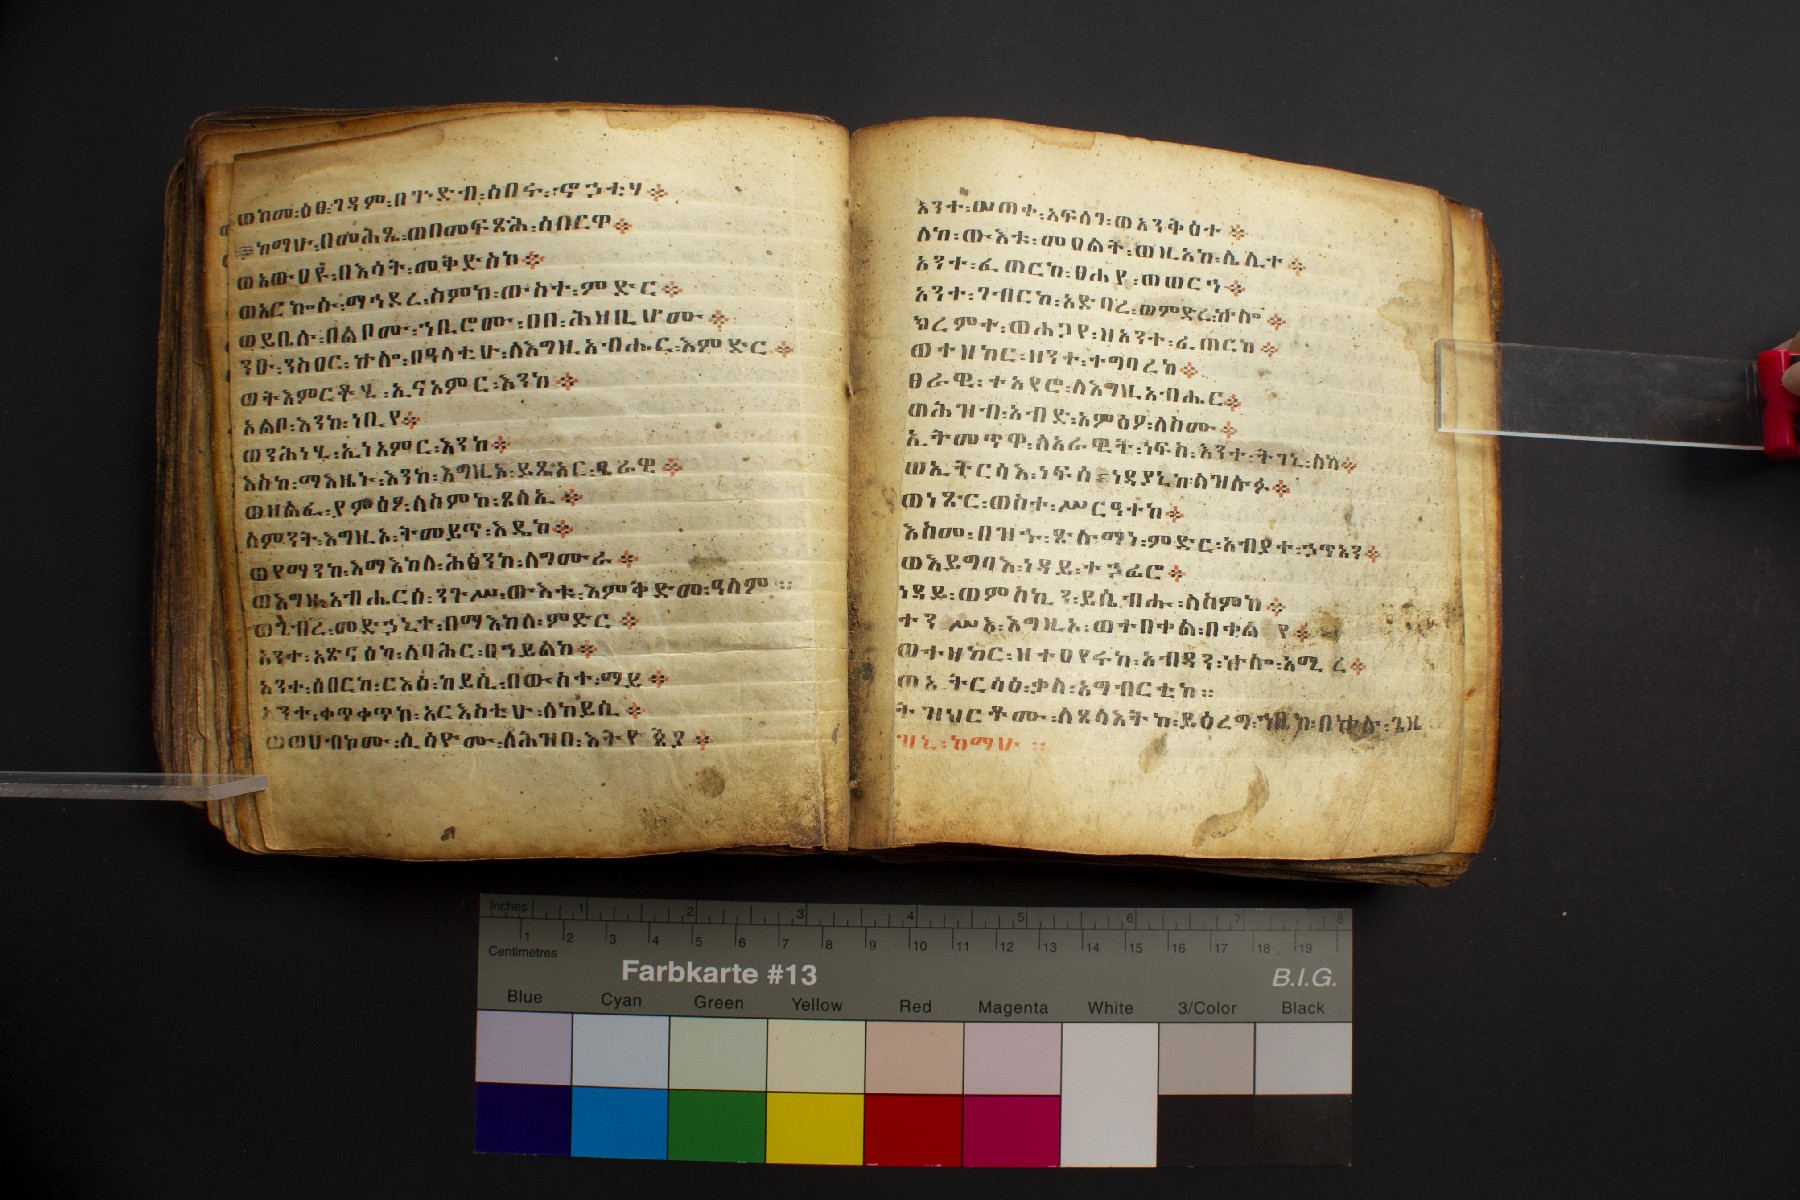 ወከመ፡ዕፀ፡ገዳም፡በጕድብ፡ሰበሩ፡ኆኃቲሃ፨
ከማሁ፡በመሕፄ፡ወበመፍጽሕ፡ሰበርዋ፨
ወአውዐዩ፡በእሳት፡መቅድስከ፨
ወአርኰሱ፡ማኅደረ፡ስምከ፡ውስተ፡ምድር፨
ወይቤሉ፡በልቦሙ፡ኀቢሮሙ፡በበ፡ሕዝቢሆሙ፨
ንዑ፡ንስዐር፡ኵሎ፡በዓላቲሁ፡ለእግዚአብሔር፡እምድር፨
ወትእምርቶሂ፡ኢናአምር፡እንከ፨
አልቦ፡እንከ፡ነቢየ፨
ወንሕነሂ፡ኢነአምር፡እንከ፨
እስከ፡ማእዜኑ፡እንከ፡እግዚኦ፡ይጼአር፡ፀራዊ፨
ወዘልፈ፡ያምዕዖ፡ለስምከ፡ጸላኢ፨
ለምንት፡እግዚኦ፡ትመይጥ፡እዴከ፨
ወየማንከ፡እማእከለ፡ሕፅንከ፡ለግሙራ፨
ወእግዚአብሔርሰ፡ንጉሥ፡ውእቱ፡እምቅድመ፡ዓለም።
ወገብረ፡መድኃኒተ፡በማእከለ፡ምድር፨
አንተ፡አጽናዕካ፡ለባሕር፡በኀይልከ፨
አንተ፡ሰበርከ፡ርእሰ፡ከይሲ፡በውስተ፡ማይ፨
አንተ፡ቀጥቀጥከ፡አርእስቲሁ፡ለከይሲ፨
ወወሀብኮሙ፡ሲሳዮሙ፡ለሕዝበ፡ኢትዮጵያ፨
አንተ፡ሠጠቀ፡አፍላገ፡ወአንቅዕተ፨
ለከ፡ውእቱ፡መዐልት፡ወዚአከ፡ሌሊተ፨
አንተ፡ፈጠርከ፡ፀሐየ፡ወወርኀ፨
አንተ፡ገብርከ፡አድባረ፡ወምድረ፡ኵሎ፨
ክረምተ፡ወሐጋየ፡ዘአንተ፡ፈጠርከ፨
ወተዘከር፡ዘንተ፡ተግባረከ፨
ፀራዊ፡ተአየሮ፡ለእግዚአብሔር፨
ወሕዝብ፡አብድ፡አምዕዖ፡ለስሙ፨
ኢትመጥዋ፡ለአራዊት፡ነፍስ፡እንተ፡ትገኒ፡ለከ፨
ወኢትርሳእ፡ነፍሰ፡ነዳያኒከ፡ለዝሉፉ፨
ወነጽር፡ወስተ፡ሥርዓተከ፨
እስመ፡በዝኁ፡ጽሉማነ፡ምድር፡አብያተ፡ኃጥአን፨
ወኢይግባእ፡ነዳይ፡ተኃፊሮ፨
ነዳይ፡ወምስኪን፡ይሴብሑ፡ለስምከ፨
ተንሥእ፡እግዚኦ፡ወተበቀል፡በቀልየ፨
ወተዘከር፡ዘተዐየሩከ፡አብዳን፡ኵሎ፡አሚረ፨
ወኢትርሳዕ፡ቃለ፡አግብርቲከ።
ትዝህርቶሙ፡ለጸላእትከ፡ይዕረግ፡ኀቤከ፡በኵሉ፡ጊዜ
ዝኒ፡ከማሁ።
Inches 1 2 3 4 5 6 7 8
Centimetres 1 2 3 4 5 6 7 8 9 10 11 12 13 14 15 16 17 18 19
Farbkarte #13 B.I.G.
Blue Cyan Green Yellow Red Magenta White 3/Color Black